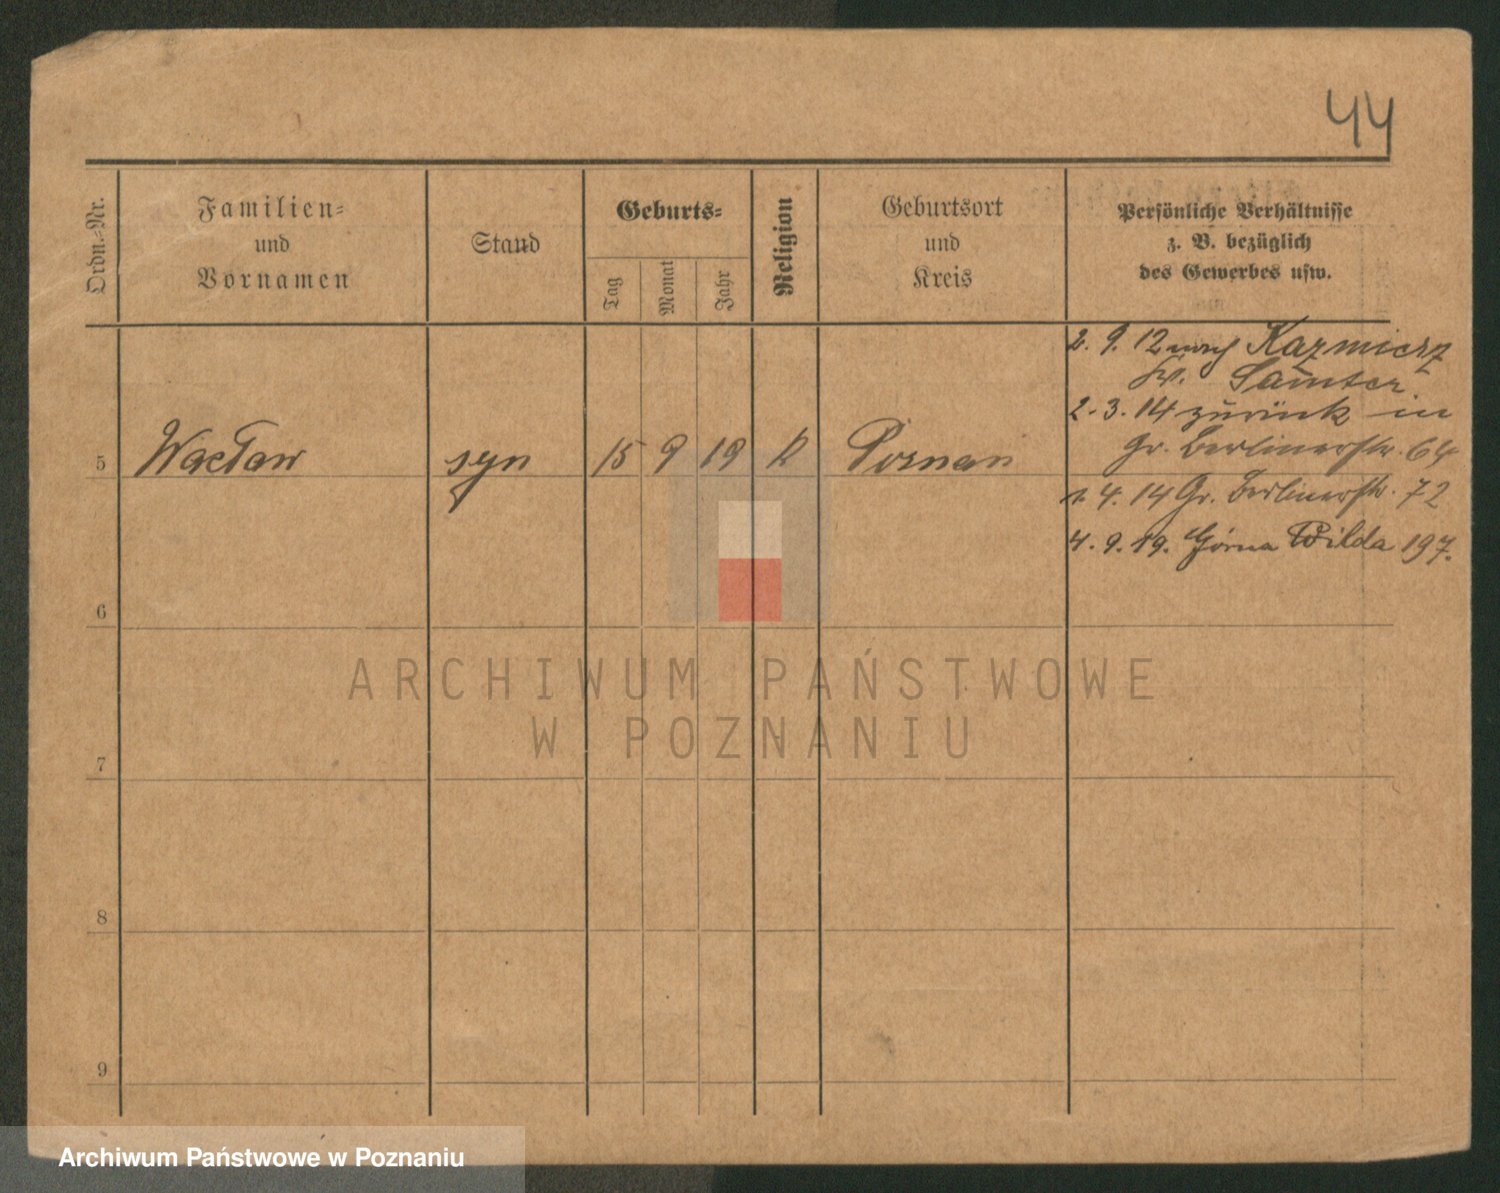 44
Ordn.-Nr.
Familien-
und
Vornamen
Stand
Geburts-
Tag
Monat
Jahr
Religion
Geburtsort
und
Kreis
Persönliche Verhältnisse
z. B. bezüglich
des Gewerbes usw.
2. 9. 12 nach Kazmierz
Kr. Samter
2. 3. 14 zurück in
Gr. Berlinerstr. 64
5 Wacław syn 15 9 19 k Poznań
1. 4. 14 Gr. Berlinerstr. 72
4. 9. 19. Górna Wilda 197.
6
7
8
9
ARCHIWUM PAŃSTWOWE
W POZNANIU
Archiwum Państwowe w Poznaniu